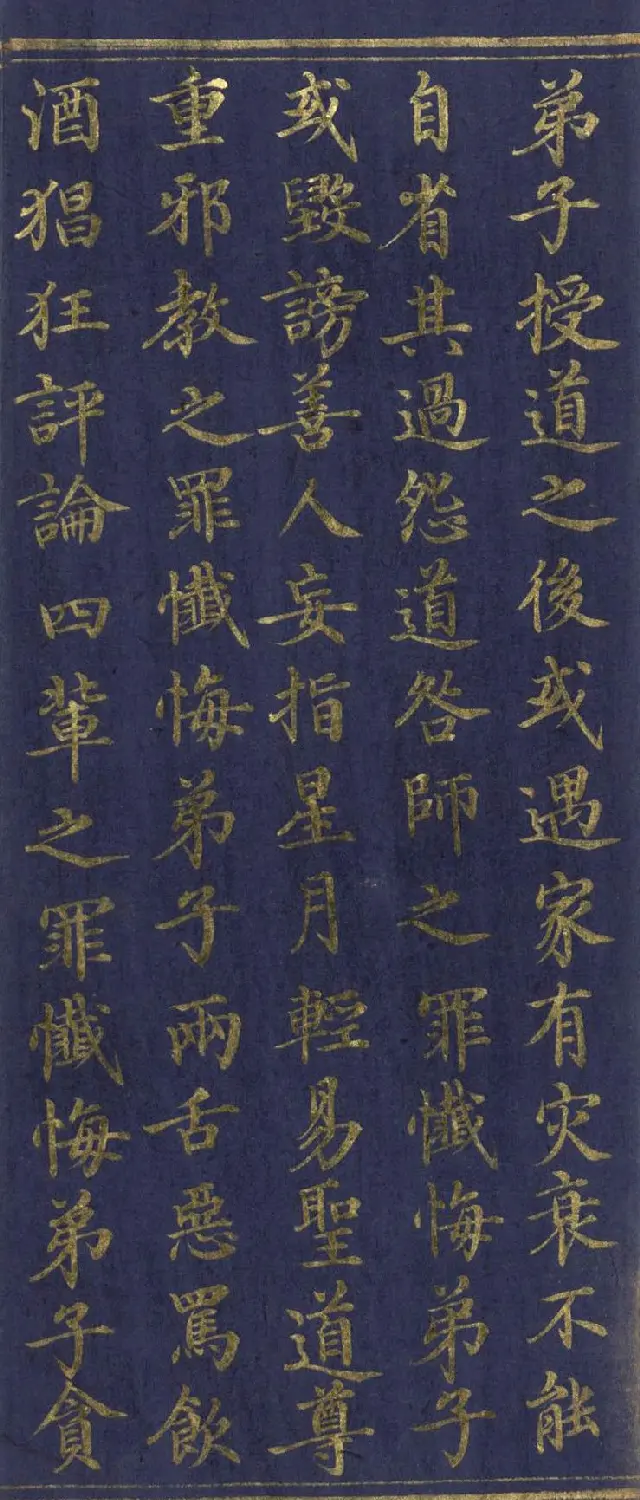 弟子授道之後或遇家有灾衰不能
自省其過怨道咎師之罪懺悔弟子
或毀謗善人妄指星月輕易聖道尊
重邪教之罪懺悔弟子兩舌惡罵飲
酒猖狂評論四輩之罪懺悔弟子貪